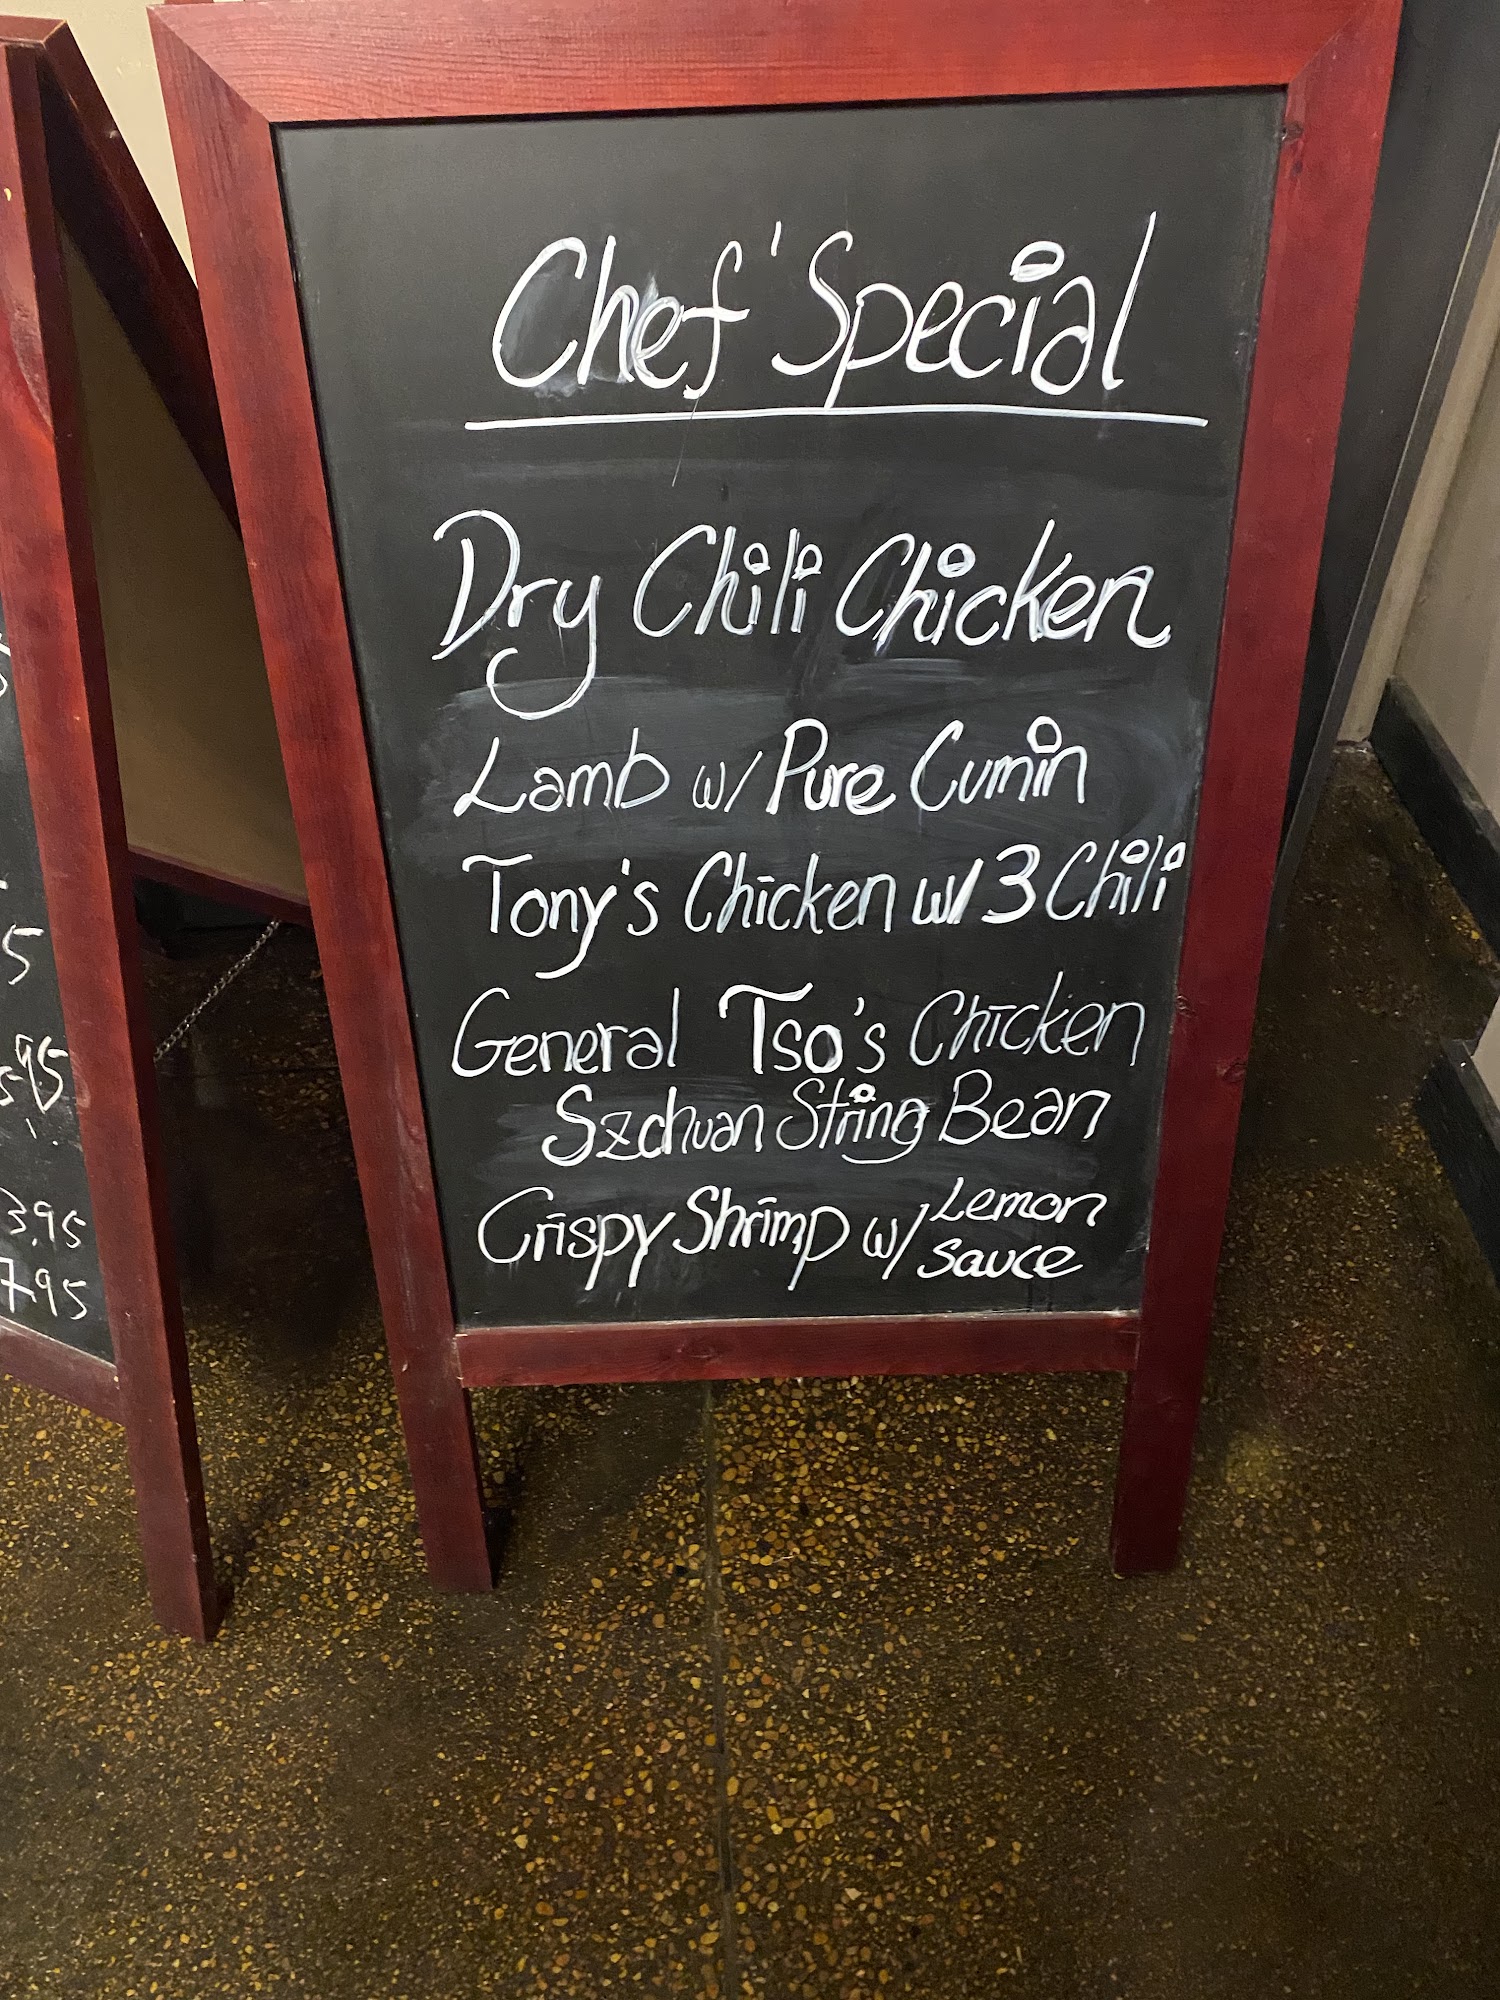 Chef' Special
Dry Chili Chicken
Lamb w/ Pure Cumin
Tony's Chicken w/ 3 Chili
General Tso's Chicken
Szchuan String Bean
Crispy Shrimp w/ Lemon
Sauce
5
5
.95
3.95
7.95